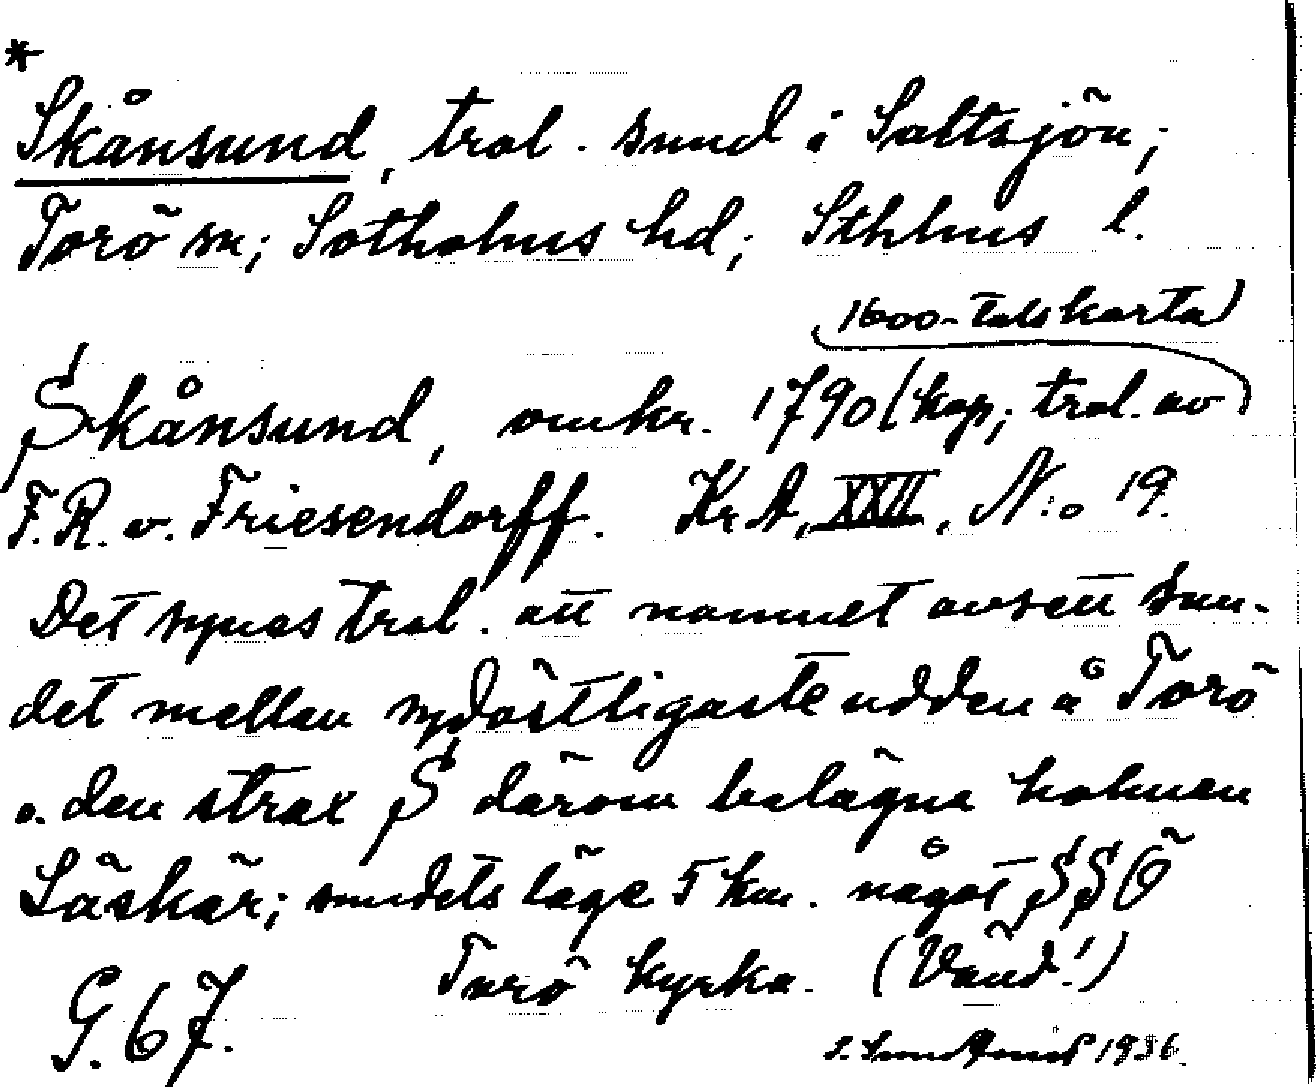 *
Skånsund, trol. sund i Saltsjön;
Torö sn; Sotholms hd; Sthlms l.
1600-talskarta
Skånsund, omkr. 1790 (kop; trol. av
F.R. v. Friesendorff. Kr.A, XXII, N:o 19.
Det synes trol. att namnet avsett sun-
det mellan sydöstligaste udden å Torö
o. den strax S därom belägna holmen
Läskär; sundets läge 5 km. något SSÖ
Torö kyrka. (Vänd!)
G. 67.
1936.